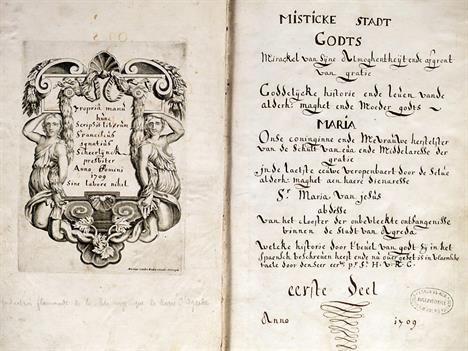 Propria manu
hunc
Scripsit librum
Franciscus
ignatius
Scheerlynck
presbiter
Anno Domini
1709
Sine labore nihil
MISTICKE STADT
GODTS
Mirackel van syne Almoghentheÿt ende afgront
van gratie
Goddelycke historie ende leven vande
alderh: maghet ende Moeder godts
MARIA
Onse coninginne ende Mevrauwe herstelster
van de Schult van eva ende Middelaresse der
gratie
in de laetste eeuwe veropenbaert door de selve
alderh: maghet aen haere dienaresse
Sr. Maria van jesus
abdesse
van het clooster der onbevleckte ontfanghenisse
binnen de Stadt van Agreda
Welcke historie door t' bevel van godt sy in het
spaensch beschreven heeft ende nu over geset is in vlaemsche
taele door den seer eerw. p. f. H. V. R. G.
eerste Deel
Anno 1709